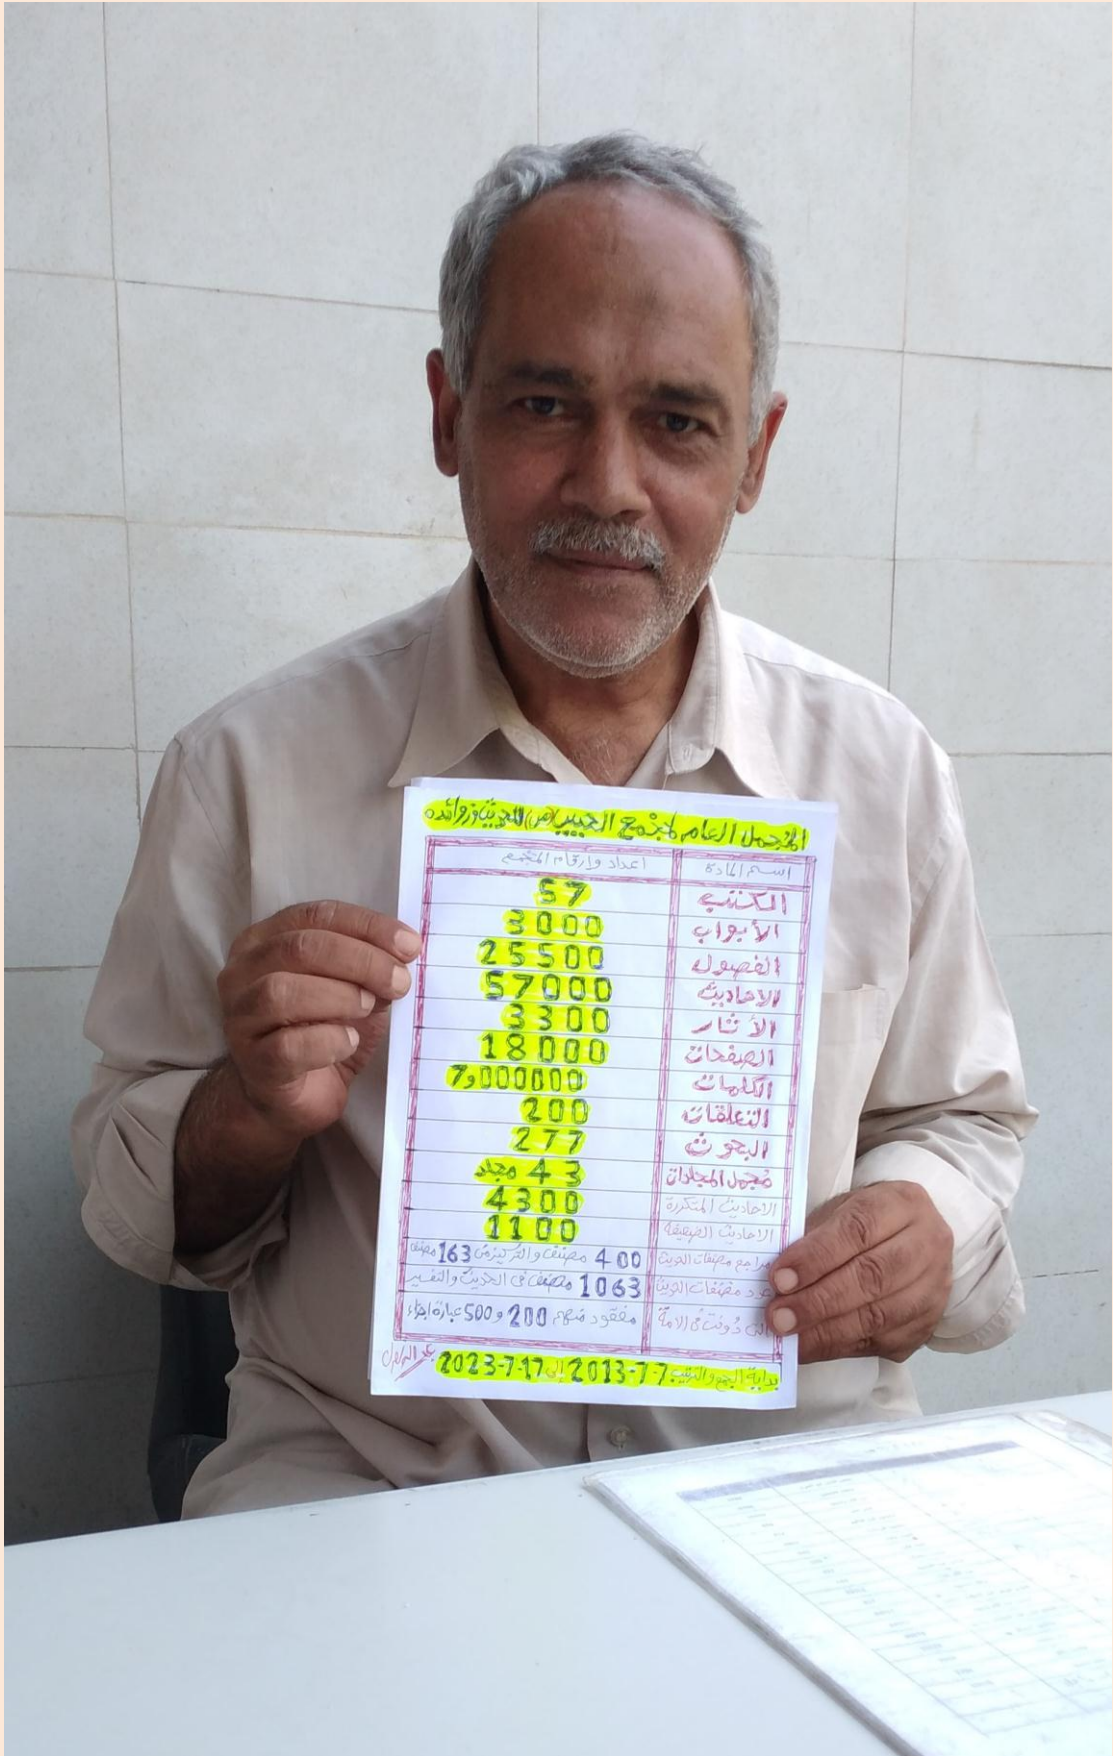 المجمل العام لمجمع الحبيب (ص) للحديث وزوائده
اسم المادة اعداد وارقام المجمع
الكتب 57
الأبواب 3000
الفصول 25500
الاحاديث 57000
الأثار 3300
الصفحات 18000
الكلمات 7و000000
التعلقات 200
البحوث 277
مُجمل المجلدات 43 مجلد
الاحاديث المتكررة 4300
الاحاديث الضعيفة 1100
مراجع مصنفات الحديث 400 مصنف والتركيز من 163 مصنف
عدد مصنفات الحديث 1063 مصنف في الحديث والتفسير
التى دُونت فى الامة مفقود منهم 200 و500 عبارة اجزاء
بداية الجمع والترتيب 7-7-2013 إلى 17-7-2023